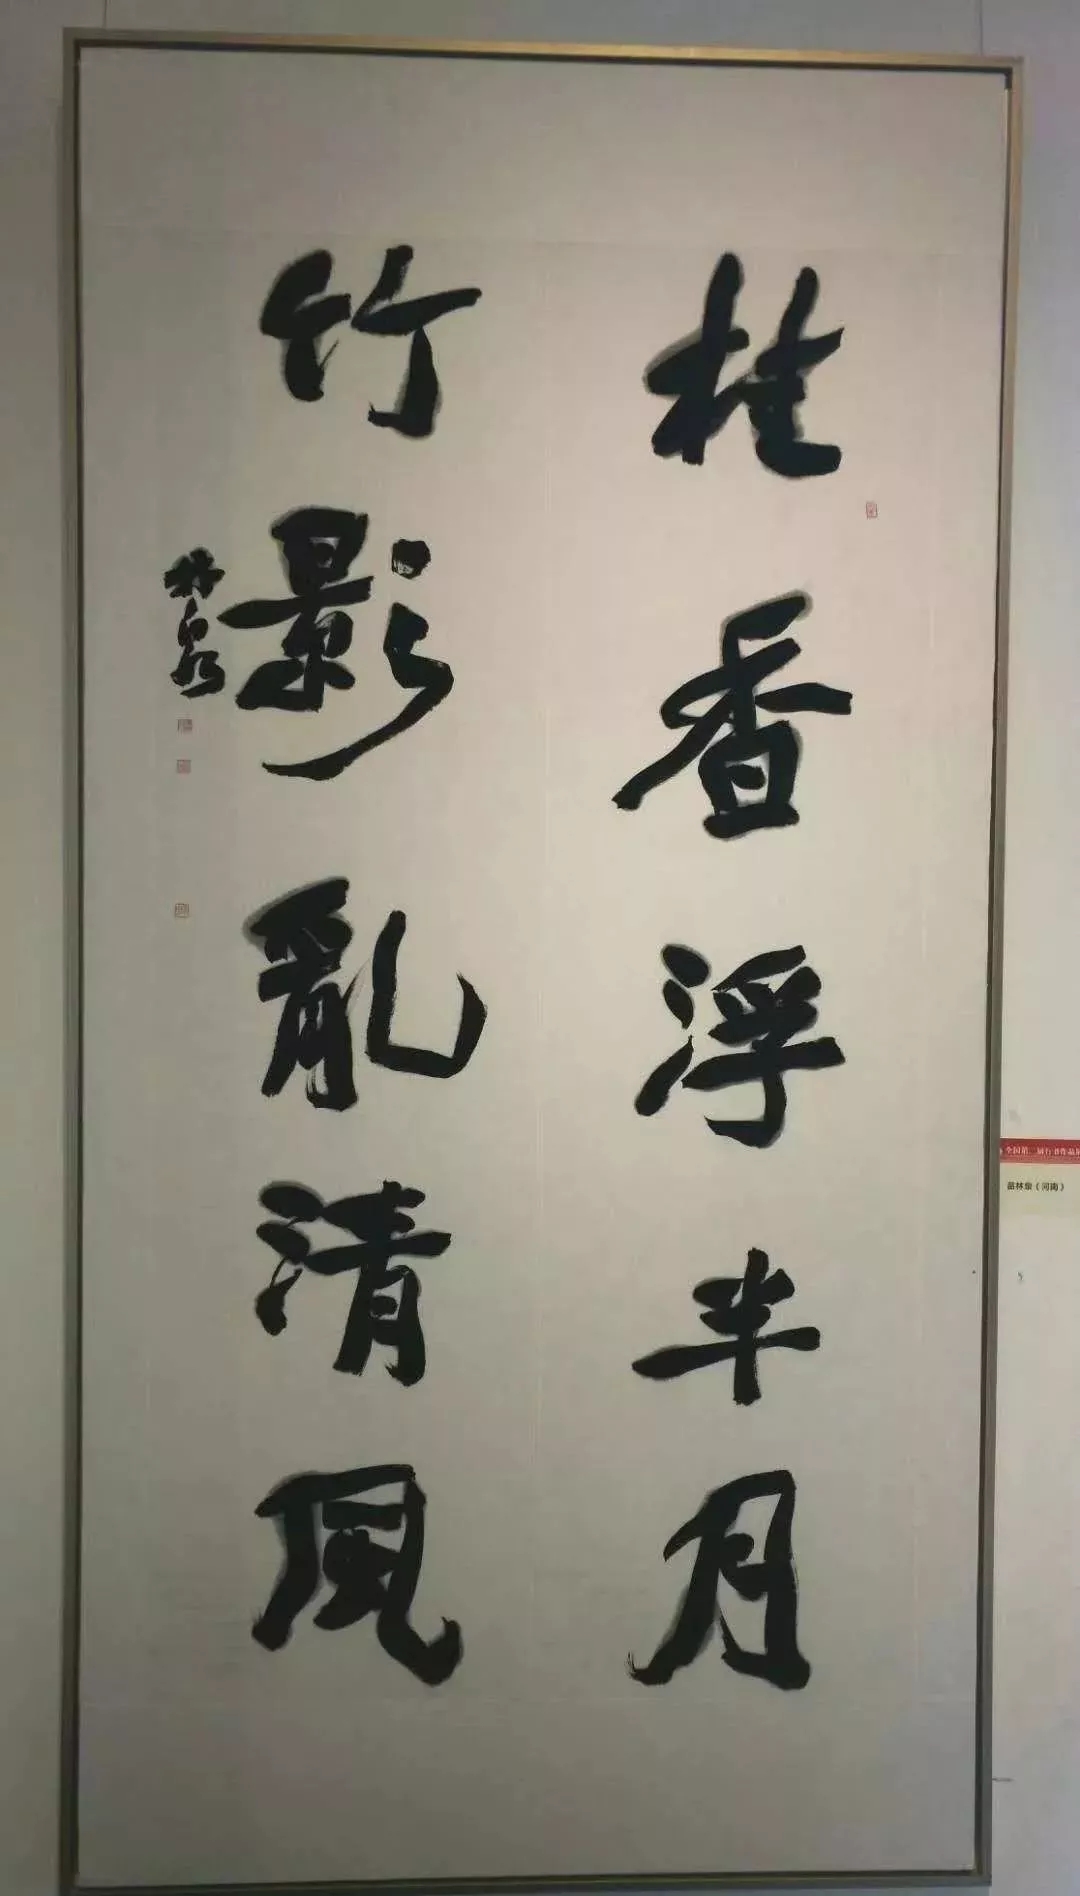 桂香浮半月
竹影亂清風
林泉
全国第二届行书作品展
苗林泉（河南）